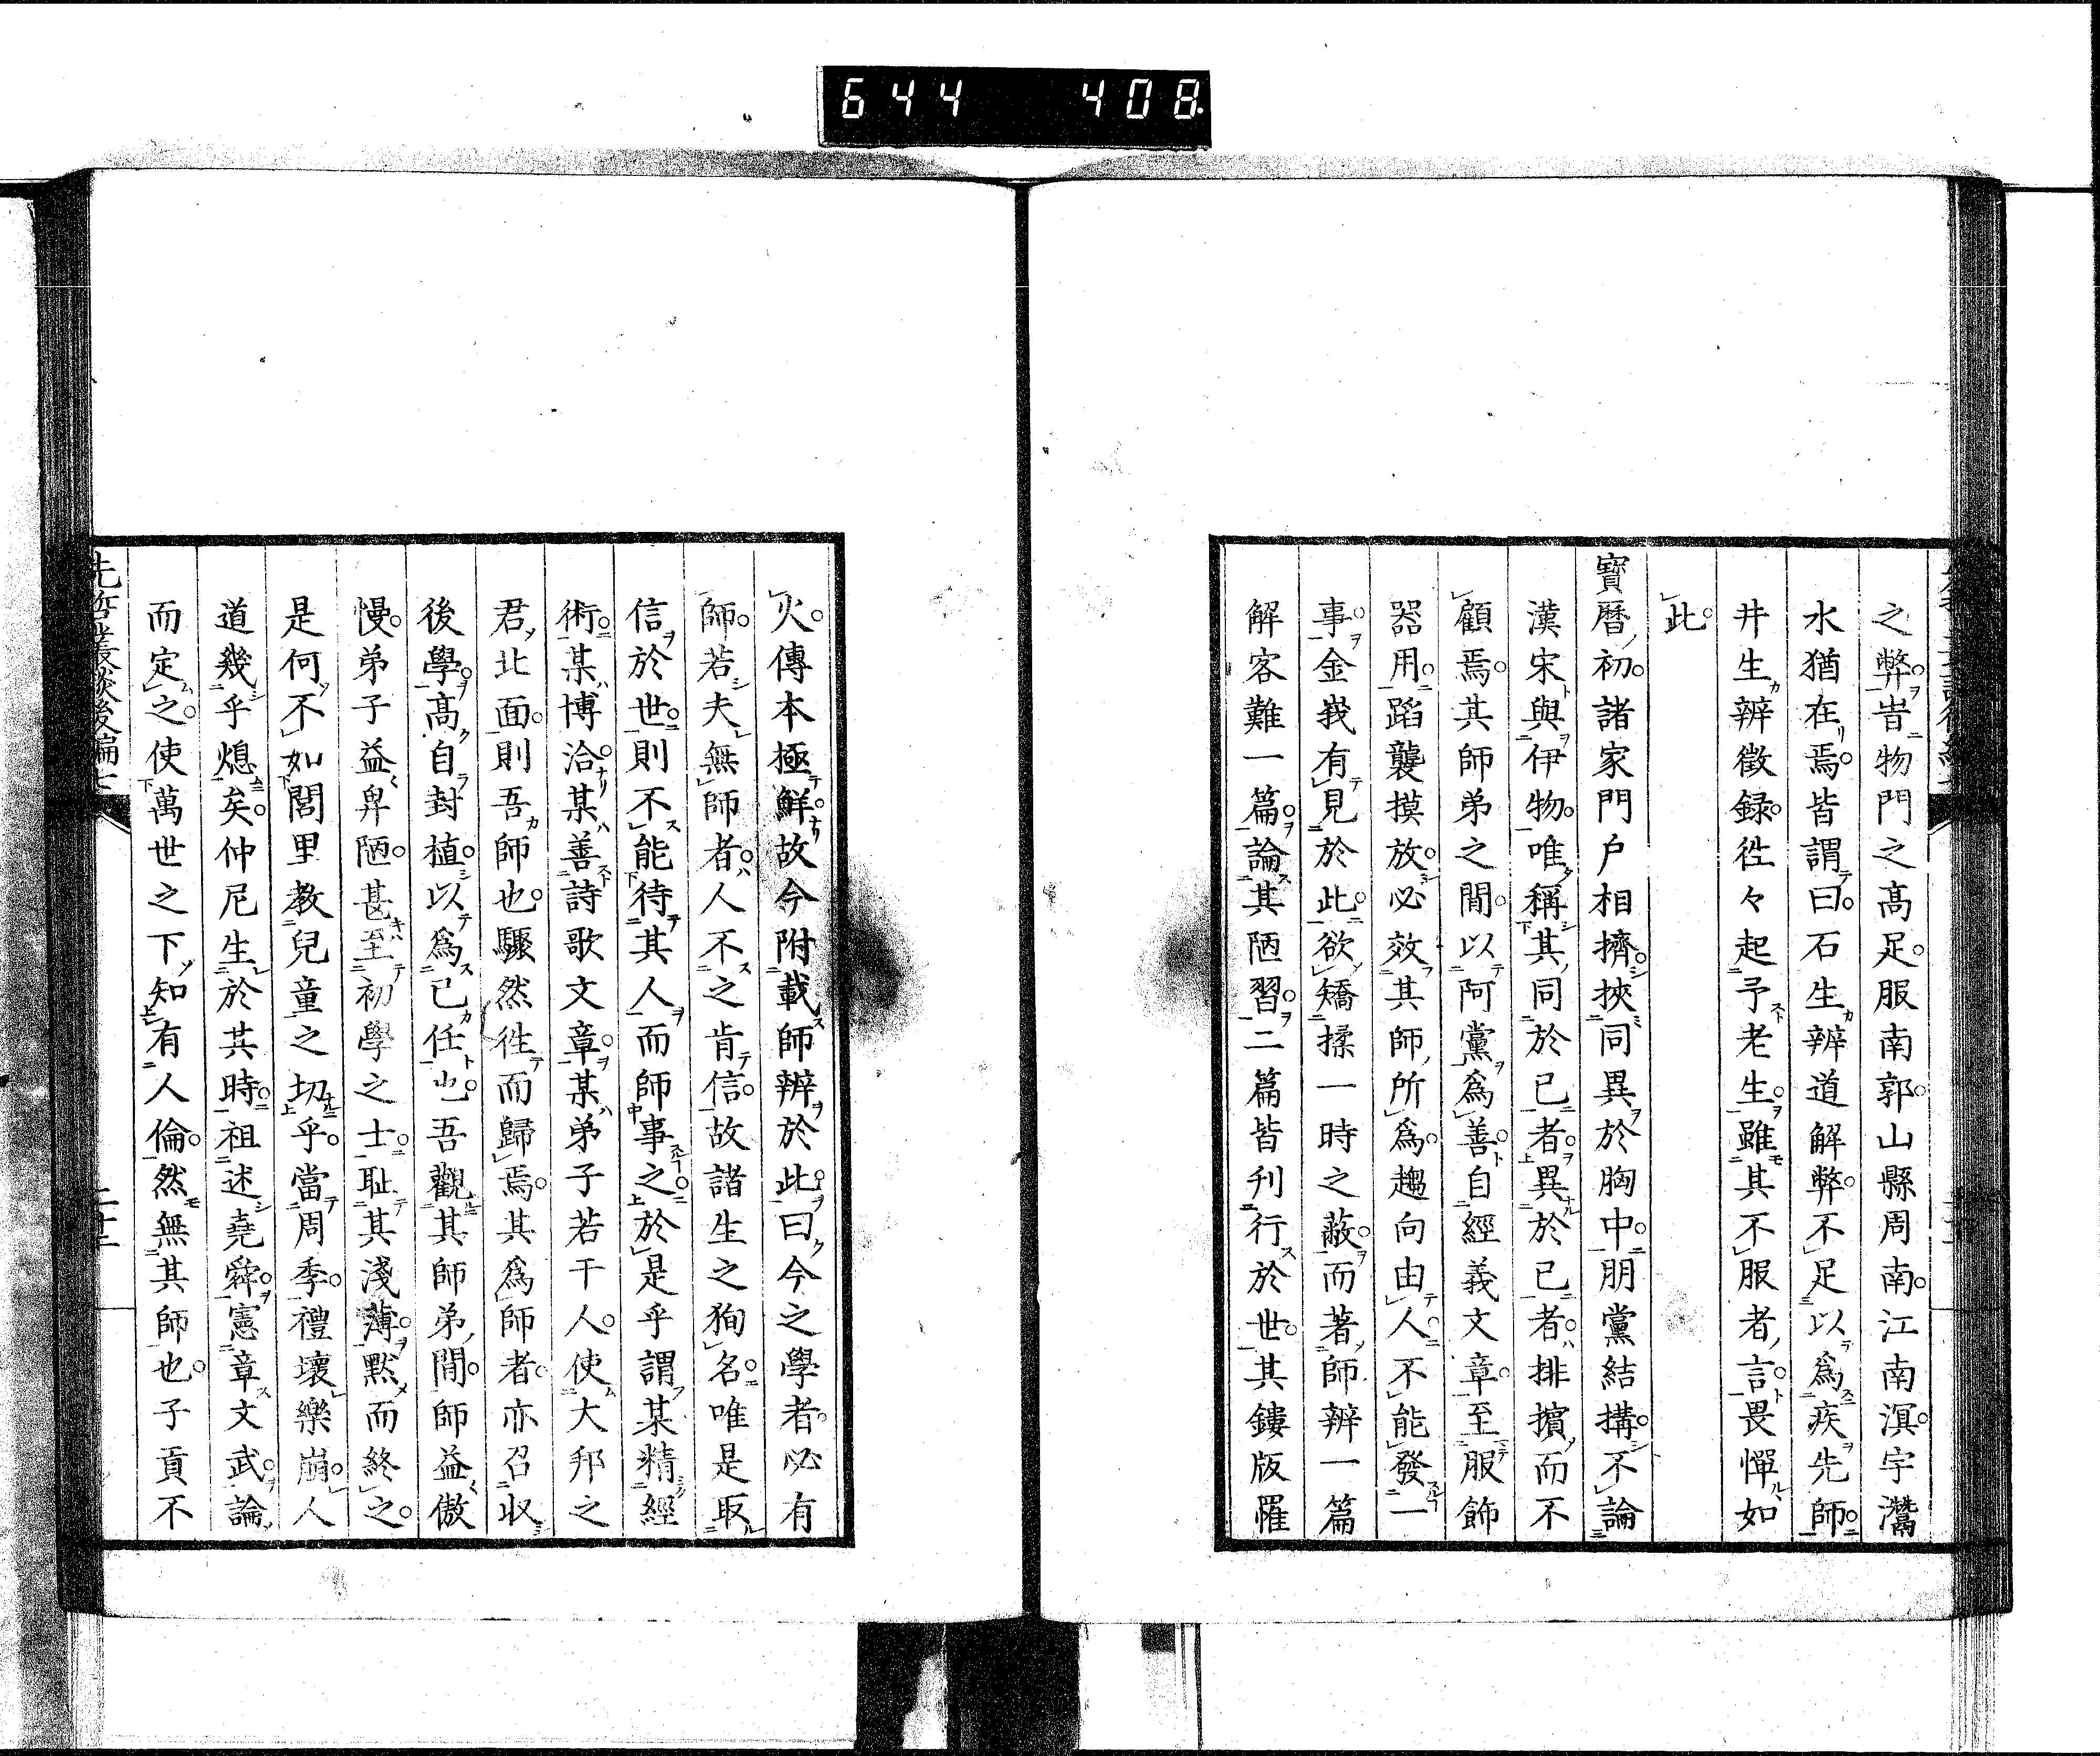 644 408
之弊皆物門之高足服南郭山縣周南江南溟宇灊
水猶在焉皆謂曰石生辨道解弊不足以爲疾先師
井生辨徵録徃々起予老生雖其不服者言畏憚如
此
寶曆初諸家門戶相擠挾同異於胸中朋黨結搆不論
漢宋與伊物唯稱其同於己者異於己者排擯而不
顧焉其師弟之間以阿黨爲善自經義文章至服飾
器用蹈襲摸放必效其師所爲趨向由人不能發一
事金峩有見於此欲矯揉一時之蔽而著師辨一篇
解客難一篇論其陋習二篇皆刊行於世其鏤版罹
火傳本極鮮故今附載師辨於此曰今之學者必有
師若夫無師者人不之肯信故諸生之狥名唯是取
信於世則不能待其人而師事之於是乎謂某精經
術某博洽某善詩歌文章某弟子若干人使大邦之
君北面則吾師也驟然徃而歸焉其爲師者亦召収
後學高自封植以爲己任也吾觀其師弟間師益傲
慢弟子益卑陋甚至初學之士恥其淺薄默而終之
是何不如閭里教兒童之切乎當周季禮壞樂崩人
道幾乎熄矣仲尼生於其時祖述堯舜憲章文武論
而定之使萬世之下知有人倫然無其師也子貢不
先哲叢談後編七
二十二